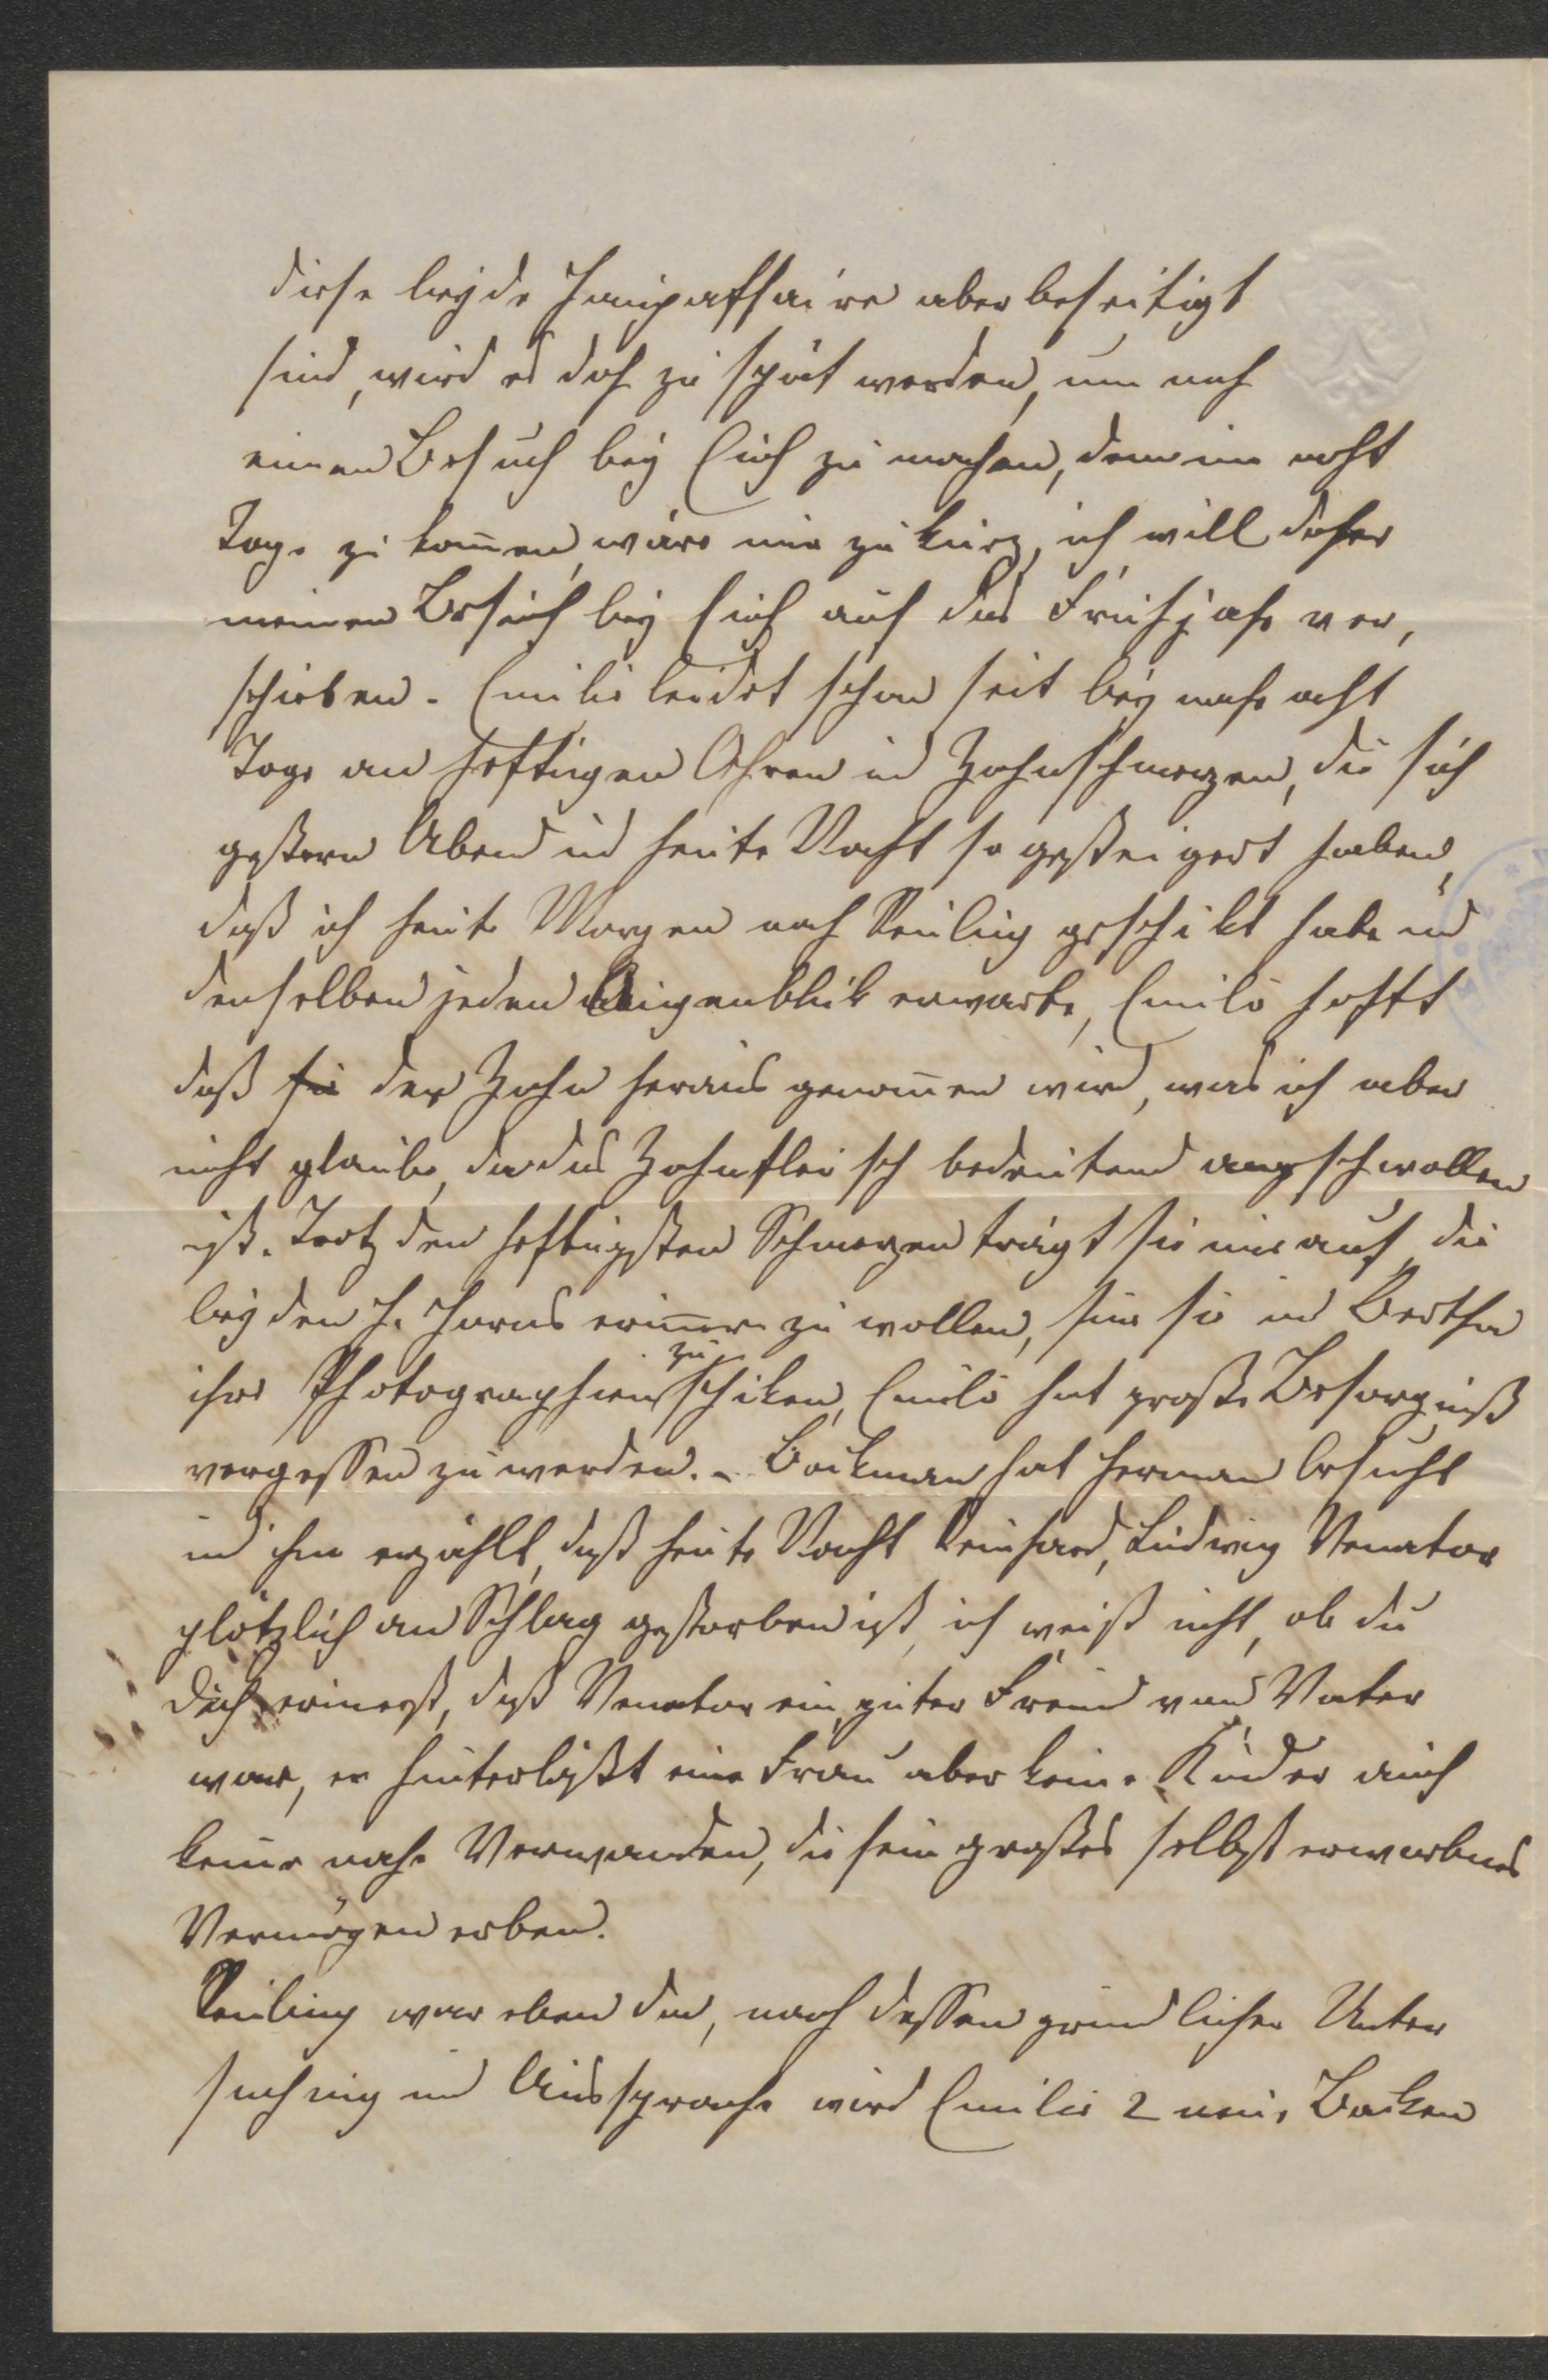 diese beyde Haupaffaire aber beseitigt
sind, wird es doch zu spät werden, um noch
einen Besuch bey Euch zu machen, denn um acht
Tage zu kom̄en, wäre mir zu kurz, ich will daher
meinen Besuch bey Euch auf das Frühjahr ver,
schieben. Emilie leidet schon seit bey nahe acht
Tage an heftigen Ohren ud Zahnschmerzen, die sich
gestern Abend ud heute Nacht so gesteigert haben,
daß ich heute Morgen nach Reuling geschikt habe ud
denselben jeden Augenblik erwarte, Emilie hofft
daß sie der Zahn heraus genom̄en wird, was ich aber
nicht glaube, da das Zahnfleisch bedeutend angeschwollen
ist. Trotz den heftigsten Schmerzen trägt sie mir auf, die
beyden H. erinnern zu wollen, für sie ud Bertha
ihre Photographien zu schiken, Emilie hat große Besorgniß
vergessen zu werden. – hat Herman besucht
ud ihm erzählt, daß heute Nacht Reinhard, Ludwig Venator
plötzlich an Schlag gestorben ist, ich weiß nicht, ob du
dich erinerst, daß Venator ein guter Freund von Vater
war, er hinterläßt eine Frau aber keine Kinder auch
keine nahe Verwanden, die sein großes selbst erworbnes
Vermögen erben.
Reuling war eben da, nach dessen gründlicher Unter
suchung und Aussprache wird Emilie 2 neue Backen